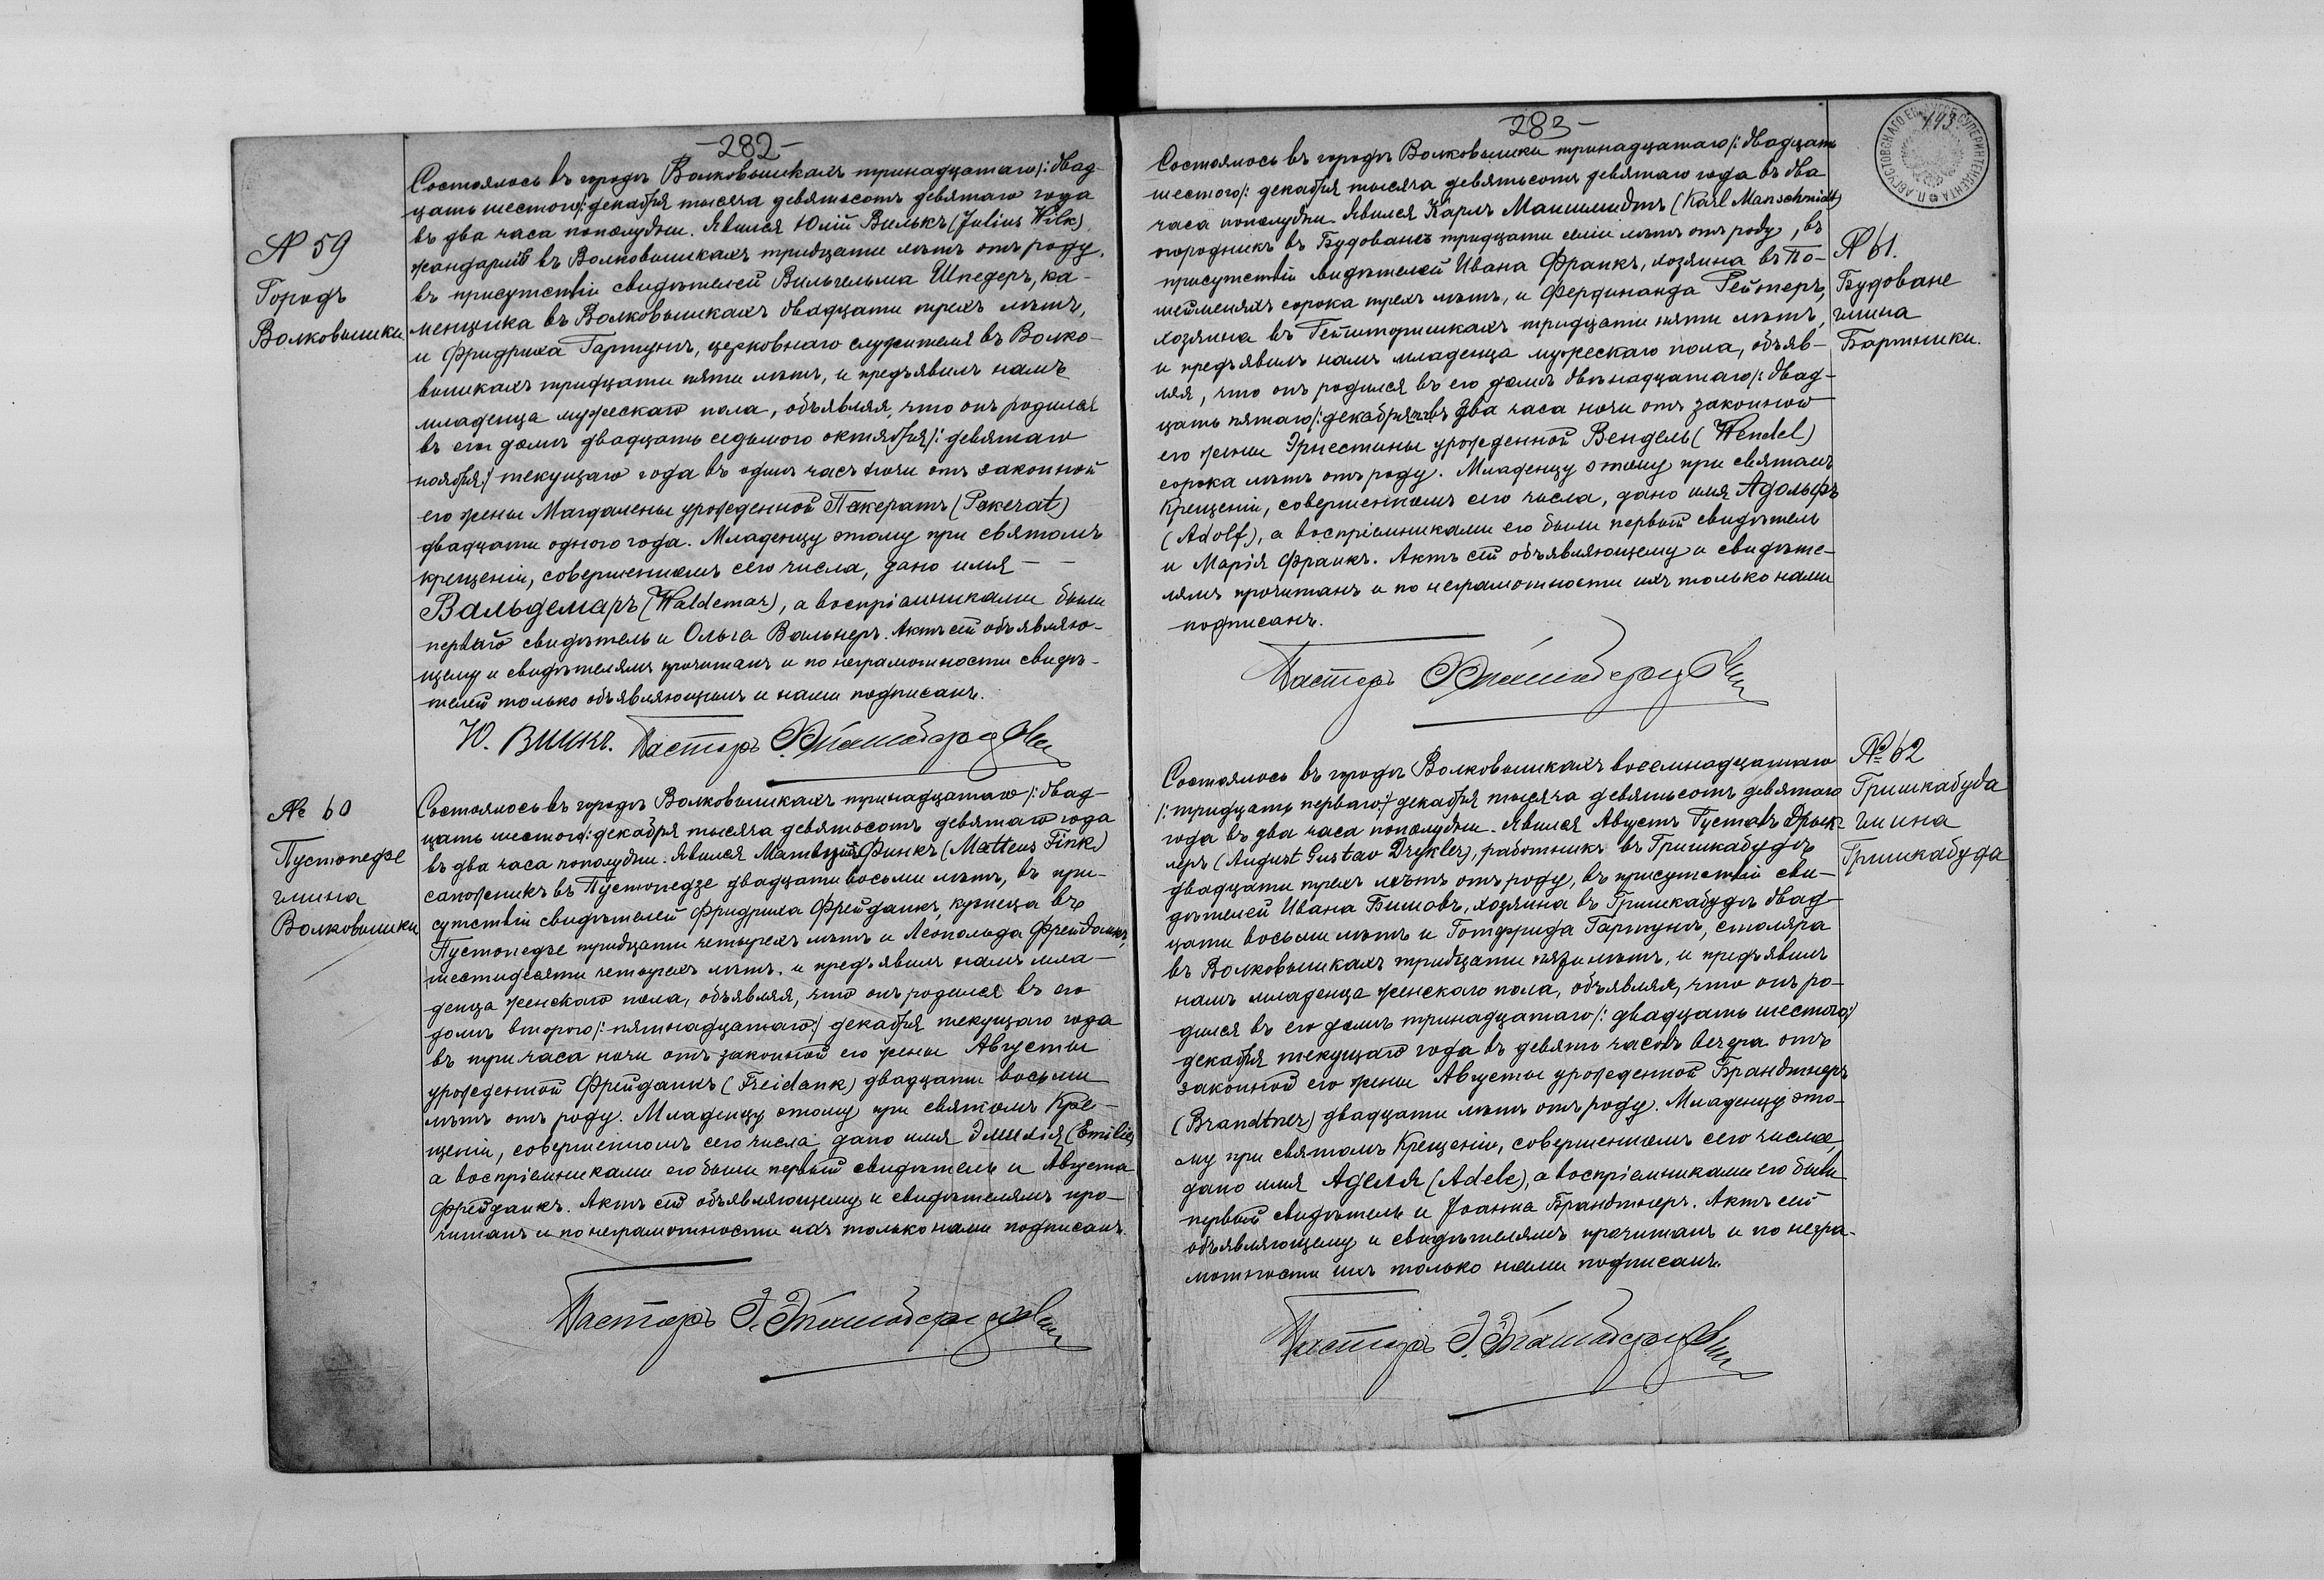 -282-
№ 59
Городъ
Волковышки
Состоялось въ городѣ Волковышкахъ тринадцатаго /: двад-
цать шестого :/ декабря тысяча девятьсотъ девятаго года
въ два часа пополудни. Явился Юлій Вилькъ (Julius Wilk)
жандармъ въ Волковышкахъ тридцати лѣтъ отъ роду,
въ присутствіи свидѣтелей Вильгельма Шпедеръ, ка-
менщика въ Волковышкахъ двадцати трехъ лѣтъ,
и Фридриха Гартунъ, церковнаго служителя въ Волко-
вышкахъ тридцати пяти лѣтъ, и предъявилъ намъ
младенца мужескаго пола, объявляя, что онъ родился
въ его домѣ двадцать седьмого октября /: девятаго
ноября :/ текущаго года въ одинъ часъ ночи отъ законной
его жены Магдалены урожденной Пекератъ (Pekerat)
двадцати одного года. Младенцу этому при святомъ
крещеніи, совершенномъ сего числа, дано имя - -
Вальдемаръ (Waldemar), а воспріемниками были
первый свидѣтель и Ольга Вальнеръ. Актъ сей объявляю-
щему и свидѣтелямъ прочитанъ и по неграмотности свидѣ-
телей только объявляющимъ и нами подписанъ.
Ю. Вилкъ. Пасторъ
№ 60
Пустопедзе
гмина
Волковышки
Состоялось въ городѣ Волковышкахъ тринадцатаго /: двад-
цать шестого :/ декабря тысяча девятьсотъ девятаго года
въ два часа пополудни. Явился Матвей Финкъ (Matteus Fink)
сапожникъ въ Пустопедзе двадцати восьми лѣтъ, въ при-
сутствіи свидѣтелей Фридриха Фрейданкъ, кузнеца въ
Пустопедзе тридцати четырехъ лѣтъ и Леопольда Фрейданкъ,
шестидесяти четырехъ лѣтъ, и предъявилъ намъ мла-
денца женскаго пола, объявляя, что онъ родился въ его
домѣ второго /: пятнадцатаго :/ декабря текущаго года
въ три часа ночи отъ законной его жены Августы
урожденной Фрейданкъ (Freidank) двадцати восьми
лѣтъ отъ роду. Младенцу этому при святомъ Кре-
щеніи, совершенномъ сего числа дано имя Эмилія (Emilie)
а воспріемниками его были первый свидѣтель и Августа
Фрейданкъ. Актъ сей объявляющему и свидѣтелямъ про-
читанъ и по неграмотности ихъ только нами подписанъ.
Пасторъ
-283-
193
№ 61.
Будоване
гмина
Бартники.
Состоялось въ городѣ Волковышки тринадцатаго /: двадцать
шестого :/ декабря тысяча девятьсотъ девятаго года въ два
часа пополудни. Явился Карлъ Маншмидтъ (Karl Manschmidt)
огородникъ въ Будоване тридцати семи лѣтъ отъ роду, въ
присутствіи свидѣтелей Ивана Франкъ, хозяина въ По-
шейменяхъ сорока трехъ лѣтъ, и Фердинанда Рейтеръ,
хозяина въ Гейшторишкахъ тридцати пяти лѣтъ,
и предъявилъ намъ младенца мужескаго пола, объяв-
ляя, что онъ родился въ его домѣ двѣнадцатаго /: двад-
цать пятаго :/ декабря въ два часа ночи отъ законной
его жены Эрнестины урожденной Вендель (Wendel)
сорока лѣтъ отъ роду. Младенцу этому при святомъ
Крещеніи, совершенномъ сего числа, дано имя Адольфъ
(Adolf), а воспріемниками его были первый свидѣтель
и Марія Франкъ. Актъ сей объявляющему и свидѣте-
лямъ прочитанъ и по неграмотности ихъ только нами
подписанъ.
Пасторъ
№ 62
Гришкабуда
гмина
Гришкабуда
Состоялось въ городѣ Волковышкахъ восемнадцатаго
/: тридцать перваго :/ декабря тысяча девятьсотъ девятаго
года въ два часа пополудни. Явился Августъ Густавъ Дрык-
леръ (August Gustav Drykler), работникъ въ Гришкабудѣ
двадцати трехъ лѣтъ отъ роду, въ присутствіи сви-
дѣтелей Ивана Бишовъ, хозяина въ Гришкабудѣ двад-
цати восьми лѣтъ и Готфрида Гартунъ, столяра
въ Волковышкахъ тридцати пяти лѣтъ, и предъявилъ
намъ младенца женскаго пола, объявляя, что онъ ро-
дился въ его домѣ тринадцатаго /: двадцать шестого :/
декабря текущаго года въ девять часовъ вечера отъ
законной его жены Августы урожденной Брандтнеръ
(Brandtner) двадцати лѣтъ отъ роду. Младенцу это-
му при святомъ Крещеніи, совершенномъ сего числа,
дано имя Аделя (Adele), а воспріемниками его были
первый свидѣтель и Іоанна Брандтнеръ. Актъ сей
объявляющему и свидѣтелямъ прочитанъ и по негра-
мотности ихъ только нами подписанъ.
Пасторъ